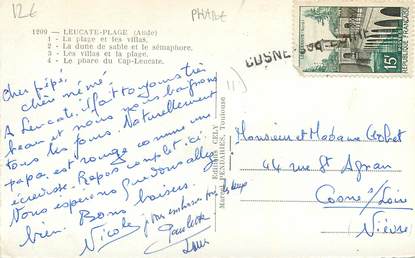 12€
PHARE
1209 - LEUCATE-PLAGE (Aude)
1 - La plage et les villas.
2 - La dune de sable et le sémaphore.
3 - Les villas et la plage.
4 - Le phare du Cap-Leucate.
COSNE
15F
Cher pépé
chère mémé.
A Leucate il fait toujours très
beau et nous nous baignons
tous les jours. Naturellement
papa est rouge comme une
écrevisse. Repos complet ici.
Nous espérons que vous allez
bien. Bons baisers.
Nicole
je vous embrasse tous les deux
Paulette
Editions GELY
Marcel PENDARIES, Toulouse
Monsieur et Madame
44 rue St Agnan
Cosne s/Loire
Nièvre